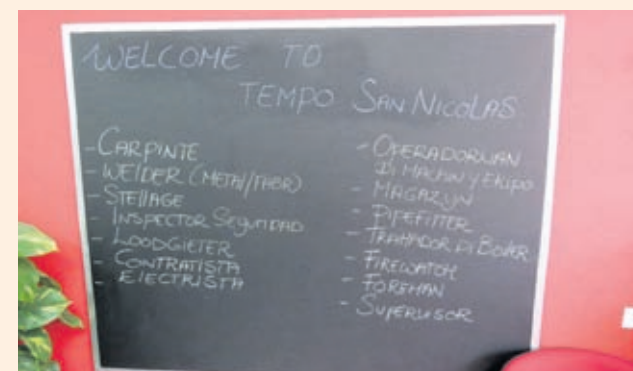 WELCOME TO
TEMPO SAN NICOLAS
- CARPINTE
- WELDER (METAL/FABR)
- STELLAGE
- INSPECTOR SEGURIDAD
- LOODGIETER
- CONTRATISTA
- ELECTRISTA
- OPERADORNAN
DI MACHIN Y EKIPO
- MAGAZYN
- PIPEFITTER
- TRAHADOR DI BOILER
- FIREWATCH
- FOREMAN
- SUPERVISOR